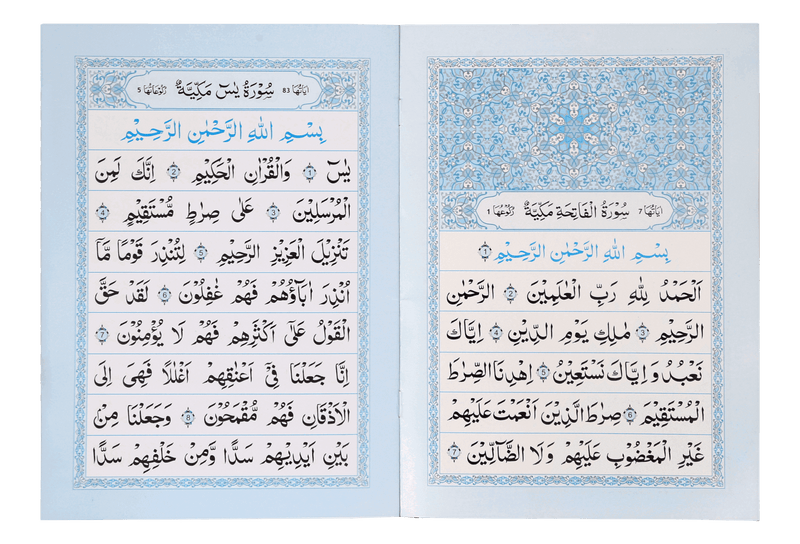 اٰيَاتُهَا 7 سُوْرَةُ الْفَاتِحَةِ مَكِّيَّةٌ رُكُوْعُهَا 1
بِسْمِ اللّٰهِ الرَّحْمٰنِ الرَّحِيْمِ ﴿1﴾
اَلْحَمْدُ لِلّٰهِ رَبِّ الْعٰلَمِيْنَ ﴿2﴾ الرَّحْمٰنِ
الرَّحِيْمِ ﴿3﴾ مٰلِكِ يَوْمِ الدِّيْنِ ﴿4﴾ اِيَّاكَ
نَعْبُدُ وَ اِيَّاكَ نَسْتَعِيْنُ ﴿5﴾ اِهْدِنَا الصِّرَاطَ
الْمُسْتَقِيْمَ ﴿6﴾ صِرَاطَ الَّذِيْنَ اَنْعَمْتَ عَلَيْهِمْ
غَيْرِ الْمَغْضُوْبِ عَلَيْهِمْ وَلَا الضَّآلِّيْنَ ﴿7﴾
اٰيَاتُهَا 83 سُوْرَةُ يٰسٓ مَكِّيَّةٌ رُكُوْعَاتُهَا 5
بِسْمِ اللّٰهِ الرَّحْمٰنِ الرَّحِيْمِ
يٰسٓ ﴿1﴾ وَالْقُرْاٰنِ الْحَكِيْمِ ﴿2﴾ اِنَّكَ لَمِنَ
الْمُرْسَلِيْنَ ﴿3﴾ عَلٰى صِرَاطٍ مُّسْتَقِيْمٍ ﴿4﴾
تَنْزِيْلَ الْعَزِيْزِ الرَّحِيْمِ ﴿5﴾ لِتُنْذِرَ قَوْمًا مَّآ
اُنْذِرَ اٰبَآؤُهُمْ فَهُمْ غٰفِلُوْنَ ﴿6﴾ لَقَدْ حَقَّ
الْقَوْلُ عَلٰٓى اَكْثَرِهِمْ فَهُمْ لَا يُؤْمِنُوْنَ ﴿7﴾
اِنَّا جَعَلْنَا فِيْٓ اَعْنَاقِهِمْ اَغْلٰلًا فَهِىَ اِلَى
الْاَذْقَانِ فَهُمْ مُّقْمَحُوْنَ ﴿8﴾ وَجَعَلْنَا مِنْۢ
بَيْنِ اَيْدِيْهِمْ سَدًّا وَّمِنْ خَلْفِهِمْ سَدًّا